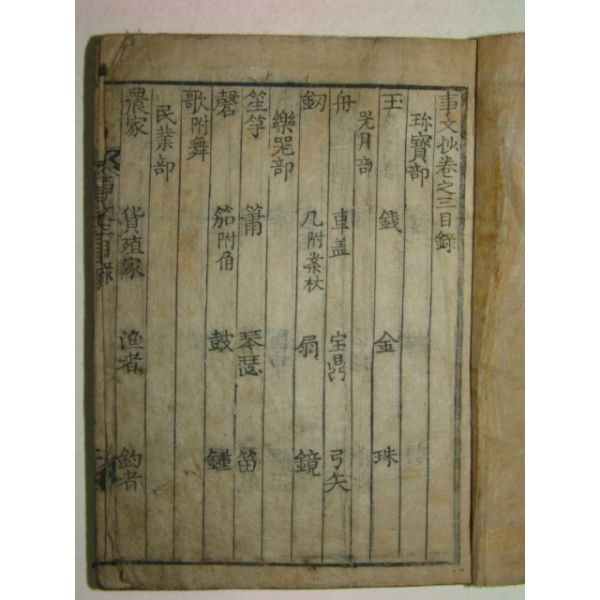 事文抄卷之三目錄
珎寶部
玉 銭 金 珠
器用部
舟 車盖 宝鼎 弓矢
釼 几附案杖 扇 鏡
樂噐部
笙竽 簫 琴瑟 笛
磬 笳附角 鼓 鍾
歌附舞
民業部
農家 貨殖家 漁者 釣者